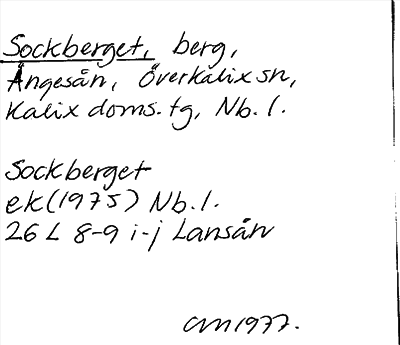 Sockberget, berg,
Ängesån, Överkalix sn,
Kalix doms.tg, Nb.l.
Sockberget
ek(1975) Nb.l.
26 L 8-9 i-j Lansån
cm 1977.